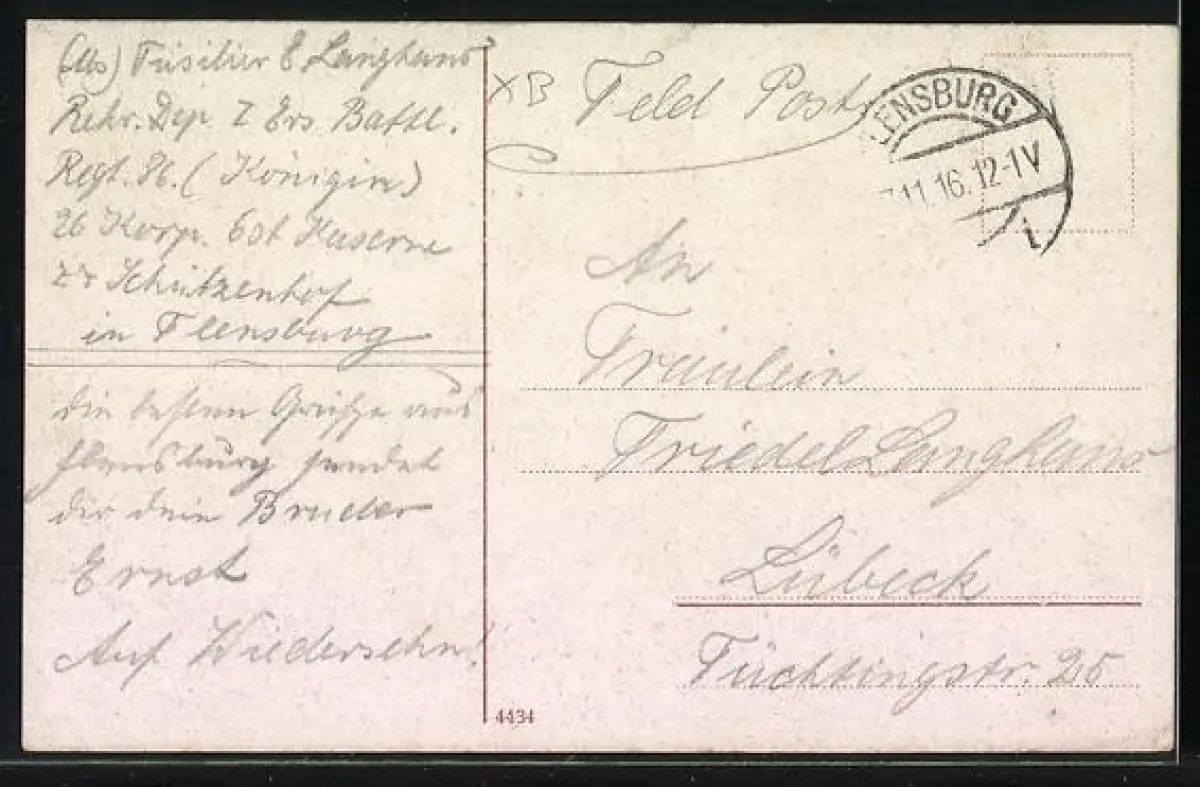 (Abs) Füsilier E. Langhans
Rekr. Dep. I Ers Battl.
Regt. 86. (Königin)
Korp. Kaserne
Schützenhof
in Flensburg
die besten Grüße aus
Flensburg sendet
dir dein Bruder
Ernst
Auf Wiedersehn!
XB Feld Post
LENSBURG
11.16.12-1V
An
Fräulein
Friedel Langhans
Lübeck
Tüchtingstr. 25
4434